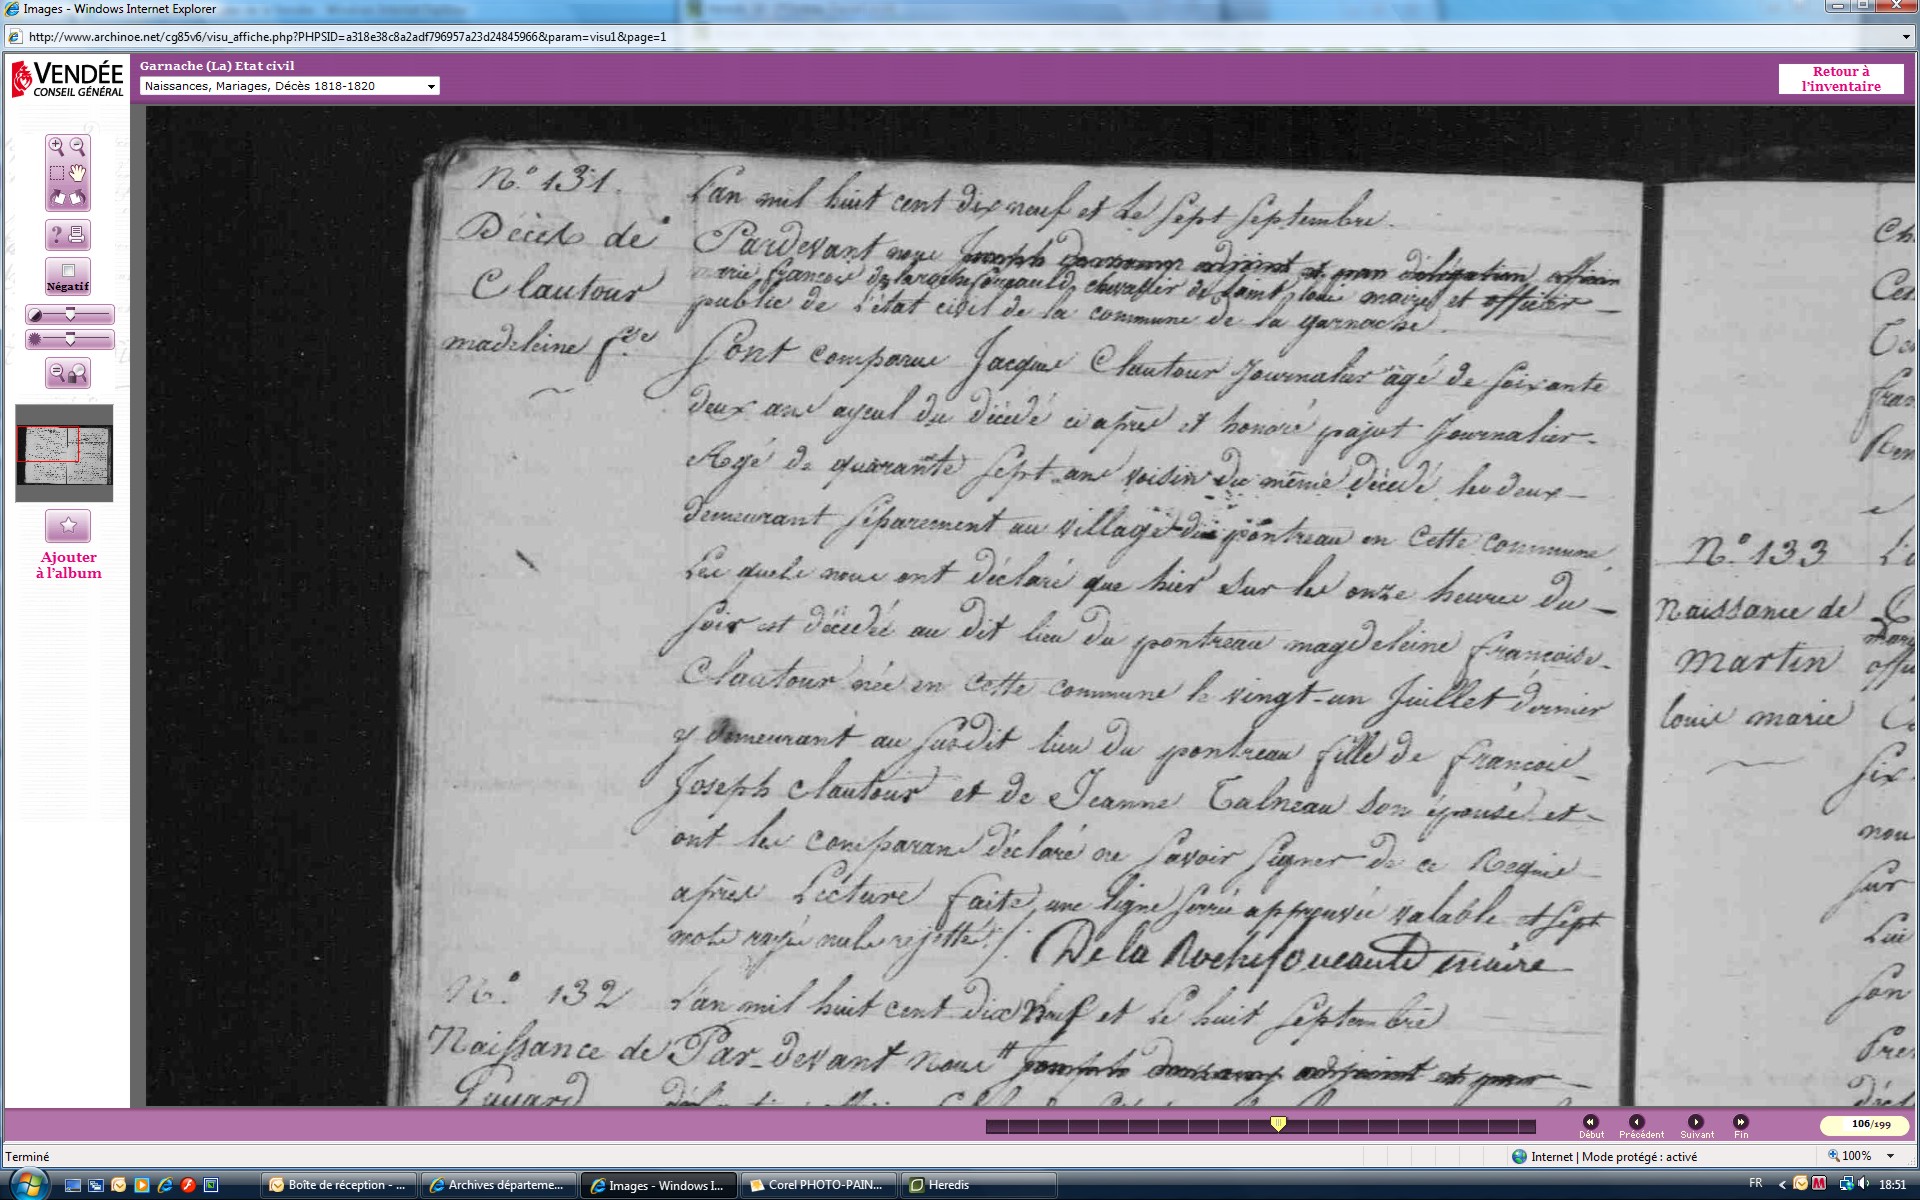 Images - Windows Internet Explorer
http://www.archinoe.net/cg85v6/visu_affiche.php?PHPSID=a318e38c8a2adf796957a23d24845966&param=visu1&page=1
VENDÉE
CONSEIL GÉNÉRAL
Garnache (La) Etat civil
Naissances, Mariages, Décès 1818-1820
Retour à
l'inventaire
Négatif
Ajouter
à l'album
N.° 131.
Décès de
Clautour
madeleine f.se
L'an mil huit cent dix neuf et le sept septembre.
Pardevant nous Joseph adjoint et par délégation officier
marie françois de larochefoucauld, chevalier de Saint louis maire et officier
public de L'état civil de la commune de la garnache.
Sont comparus Jacques Clautour Journalier âgé de soixante
deux ans ayeul du décédé ci après et honoré pajot Journalier
Agé de quarante sept ans voisin du même décédé, les deux
demeurant séparement au village du pontreau en cette commune
Les quels nous ont déclaré que hier sur les onze heures du
soir est décédée au dit lieu du pontreau magdeleine françoise
Clautour née en cette commune le vingt-un Juillet dernier
y demeurant au susdit lieu du pontreau fille de françois
Joseph Clautour et de Jeanne Talneau son épouse et
ont les comparans déclaré ne savoir signer de ce Requis
après Lecture faite, une ligne serrée approuvée valable et sept
mots rayés nuls rejettés /. De la Rochefoucauld maire
N.° 132
Naissance de
L'an mil huit cent dix Neuf et Le huit septembre
Par-devant Nous Joseph adjoint et par
N.° 133
Naissance de
Martin
louis marie
106/199
Début
Précédent
Suivant
Fin
Terminé
Internet | Mode protégé : activé
100%
Boîte de réception - ...
Archives départeme...
Images - Windows I...
Corel PHOTO-PAIN...
Heredis
FR
18:51